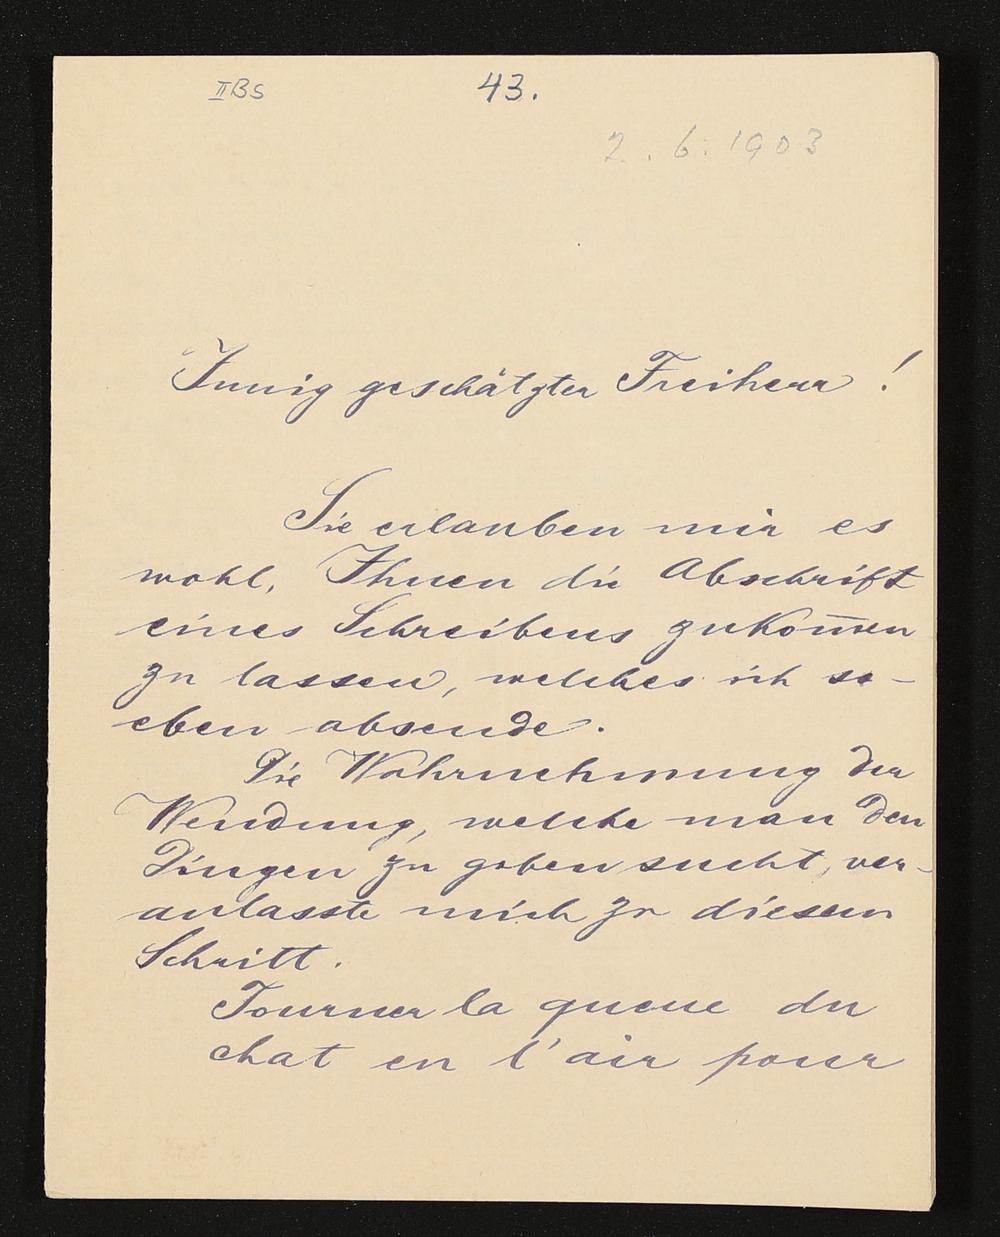 IIBs
43.
2. 6. 1903
Innig geschätzter Freiherr !
Sie erlauben mir es
wohl, Ihnen die Abschrift
eines Schreibens zukom̅en
zu lassen, welches ich so-
eben absende.
Die Wahrnehmung der
Wendung, welche man den
Dingen zu geben sucht, ver-
anlasste mich zu diesem
Schritt.
Tourner la queue du
chat en l'air pour